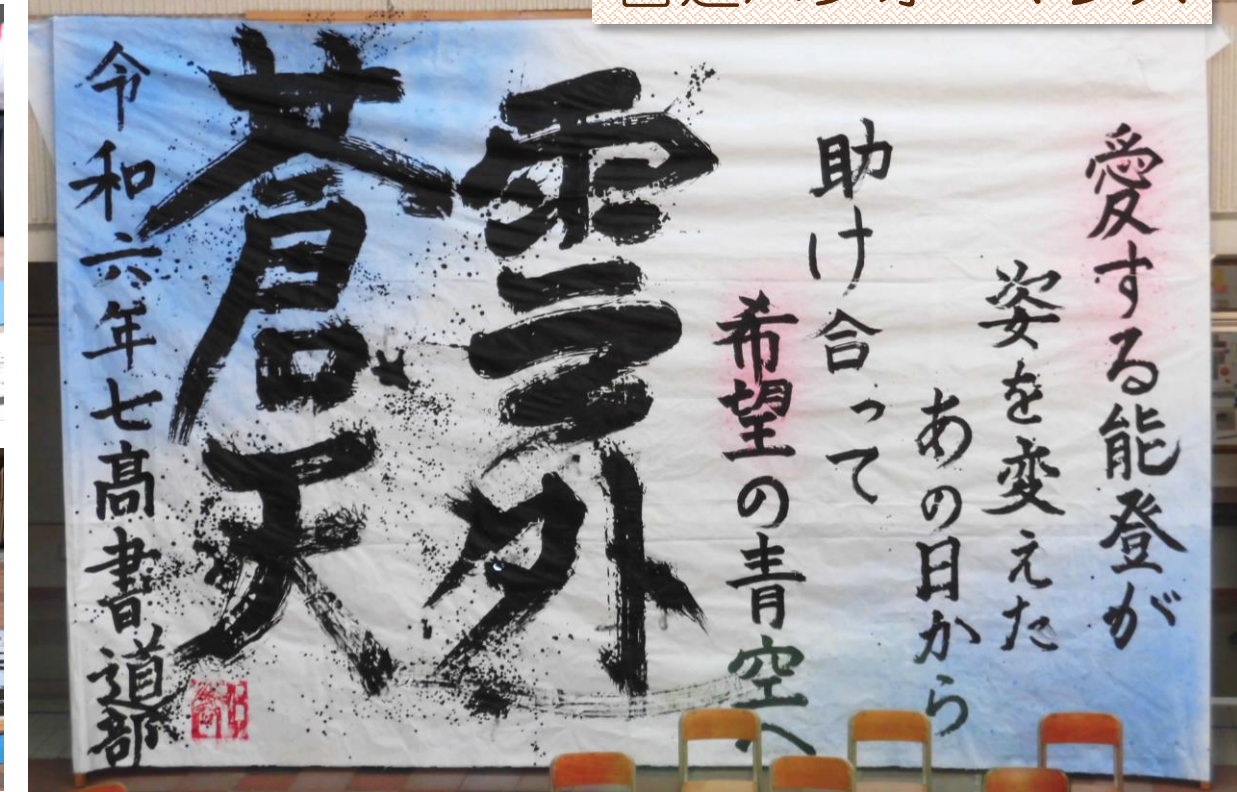 愛する能登が
姿を変えた
あの日から
助け合って
希望の青空へ
雲外
蒼天
令和六年七高書道部